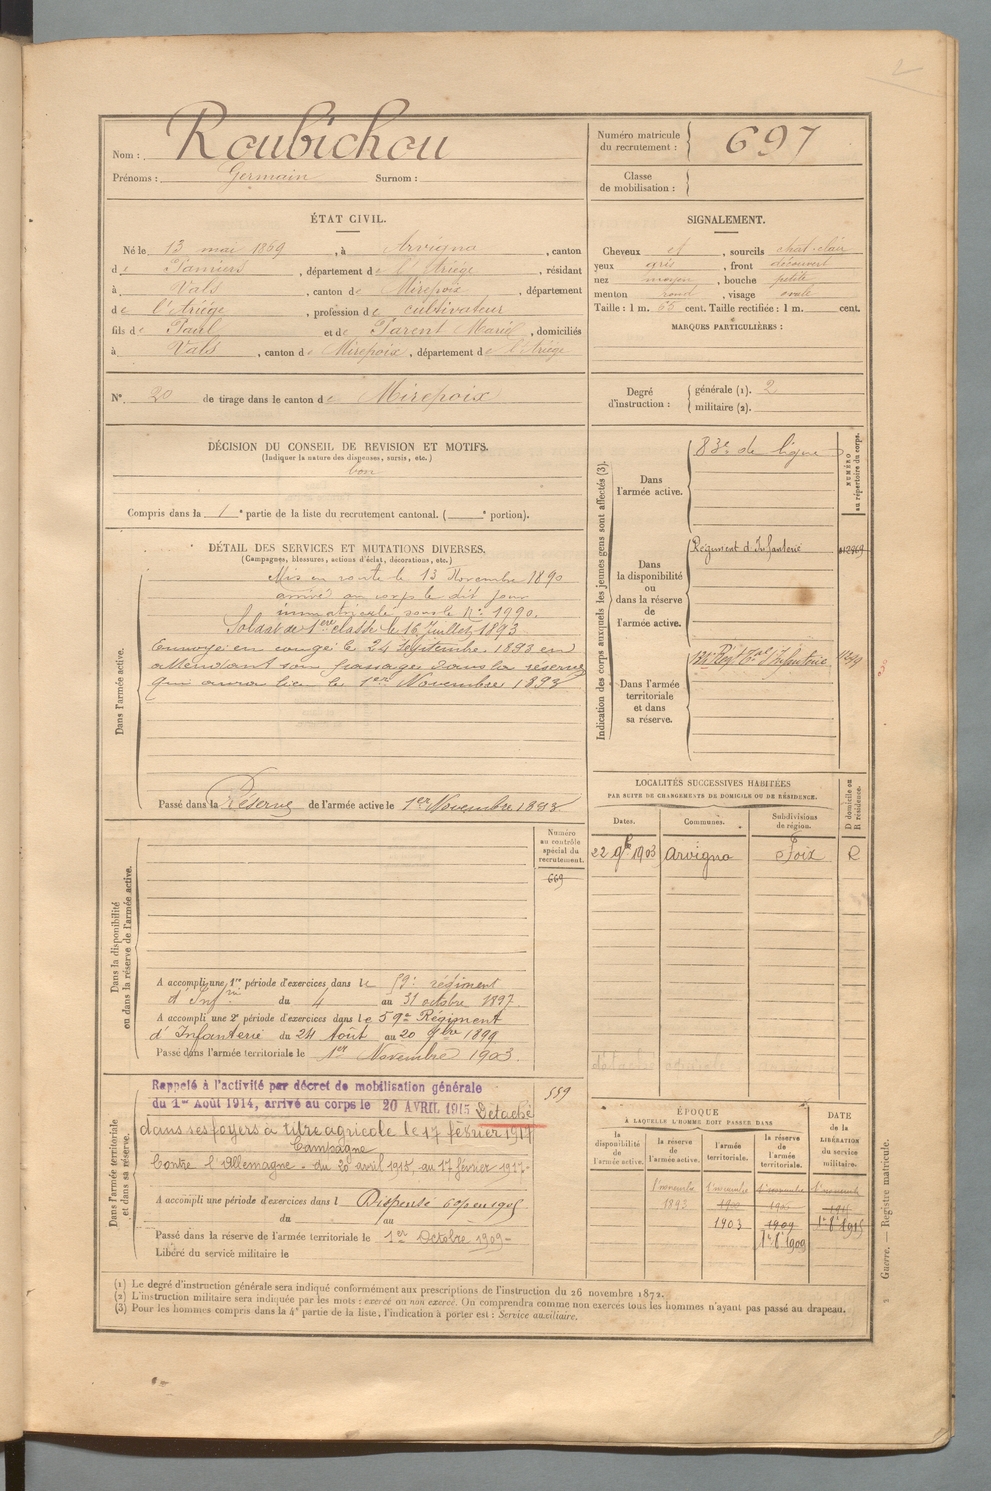 2
Nom : Roubichou
Prénoms : Germain Surnom :
Numéro matricule du recrutement : 697
Classe de mobilisation :
ÉTAT CIVIL.
Né le 13 mai 1869, à Arvigna, canton
de Pamiers, département de l'Ariège, résidant
à Vals, canton de Mirepoix, département
de l'Ariège, profession de cultivateur
fils de Paul et de Parent Marie, domiciliés
à Vals, canton de Mirepoix, département de l'Ariège
N° 20 de tirage dans le canton de Mirepoix
SIGNALEMENT.
Cheveux et, sourcils chat. clair
yeux gris, front découvert
nez moyen, bouche petite
menton rond, visage ovale
Taille : 1 m. 65 cent. Taille rectifiée : 1 m. cent.
MARQUES PARTICULIÈRES :
Degré d'instruction : générale (1). 2
militaire (2).
DÉCISION DU CONSEIL DE REVISION ET MOTIFS.
(Indiquer la nature des dispenses, sursis, etc.)
bon
Compris dans la 1e partie de la liste du recrutement cantonal. ( e portion).
DÉTAIL DES SERVICES ET MUTATIONS DIVERSES.
(Campagnes, blessures, actions d'éclat, décorations, etc.)
Dans l'armée active.
Mis en route le 13 Novembre 1890
arrivé au corps le dit jour
immatriculé sous le N° 1990.
Soldat de 1ère classe le 16 Juillet 1893
Envoyé en congé le 24 Septembre 1893 en
attendant son passage dans la réserve
qui aura lieu le 1er Novembre 1893
Passé dans la Réserve de l'armée active le 1er Novembre 1893
Indication des corps auxquels les jeunes gens sont affectés (3).
NUMÉRO au répertoire du corps.
Dans l'armée active.
83e de ligne
Dans la disponibilité ou dans la réserve de l'armée active.
Régiment d'Infanterie
Dans l'armée territoriale et dans sa réserve.
LOCALITÉS SUCCESSIVES HABITÉES
PAR SUITE DE CHANGEMENTS DE DOMICILE OU DE RÉSIDENCE.
Dates. Communes. Subdivisions de région. D domicile ou R résidence.
22 9bre 1903 Arvigna Foix R
Dans la disponibilité ou dans la réserve de l'armée active.
Numéro au contrôle spécial du recrutement.
669
A accompli une 1re période d'exercices dans le 59e régiment
d'Infrie du 4 au 31 octobre 1897.
A accompli une 2e période d'exercices dans le 59e Régiment
d'Infanterie du 24 Août au 20 7bre 1899
Passé dans l'armée territoriale le 1er Novembre 1903.
Dans l'armée territoriale et dans sa réserve.
559
Rappelé à l'activité par décret de mobilisation générale
du 1er Août 1914, arrivé au corps le 20 AVRIL 1915 Détaché
dans ses foyers à titre agricole le 17 février 1917
Campagne
Contre l'Allemagne - du 20 avril 1915, au 17 février 1917-
A accompli une période d'exercices dans l Dispensé
du au
Passé dans la réserve de l'armée territoriale le 1er Octobre 1909-
Libéré du service militaire le
ÉPOQUE
À LAQUELLE L'HOMME DOIT PASSER DANS
la disponibilité de l'armée active.
la réserve de l'armée active.
l'armée territoriale.
la réserve de l'armée territoriale.
DATE de la LIBÉRATION du service militaire.
1 novembre 1 novembre 1 novembre 1 novembre
1893
1903 1909 1er 8e 1915
1er 8e 1909
Guerre. — Registre matricule.
(1) Le degré d'instruction générale sera indiqué conformément aux prescriptions de l'instruction du 26 novembre 1872.
(2) L'instruction militaire sera indiquée par les mots : exercé ou non exercé. On comprendra comme non exercés tous les hommes n'ayant pas passé au drapeau.
(3) Pour les hommes compris dans la 4e partie de la liste, l'indication à porter est : Service auxiliaire.